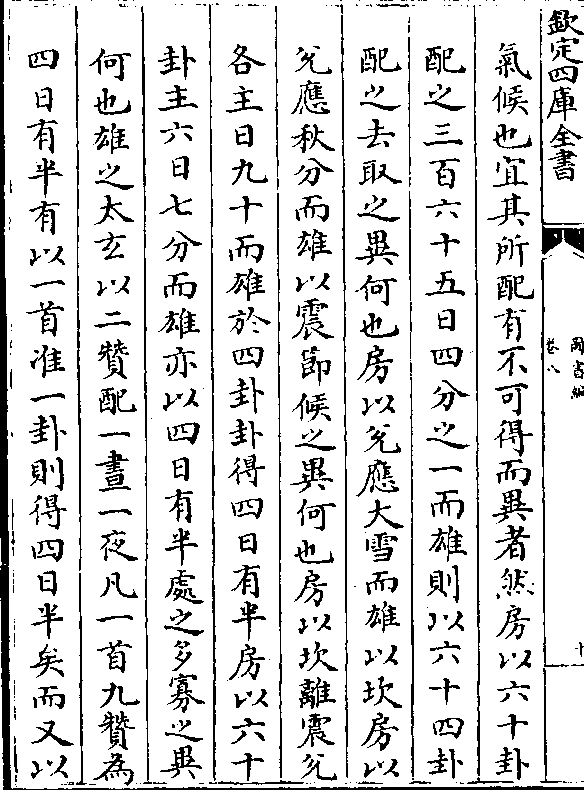 欽定四庫全書
圖書編
卷八
氣候也宜其所配有不可得而異者然房以六十卦
配之三百六十五日四分之一而雄則以六十四卦
配之去取之異何也房以兊應大雪而雄以坎房以
兊應秋分而雄以震節候之異何也房以坎離震兊
各主日九十而雄於四卦卦得四日有半房以六十
卦主六日七分而雄亦以四日有半處之多寡之異
何也雄之太玄以二贊配一晝一夜凡一首九贊為
四日有半有以一首准一卦則得四日半矣而又以